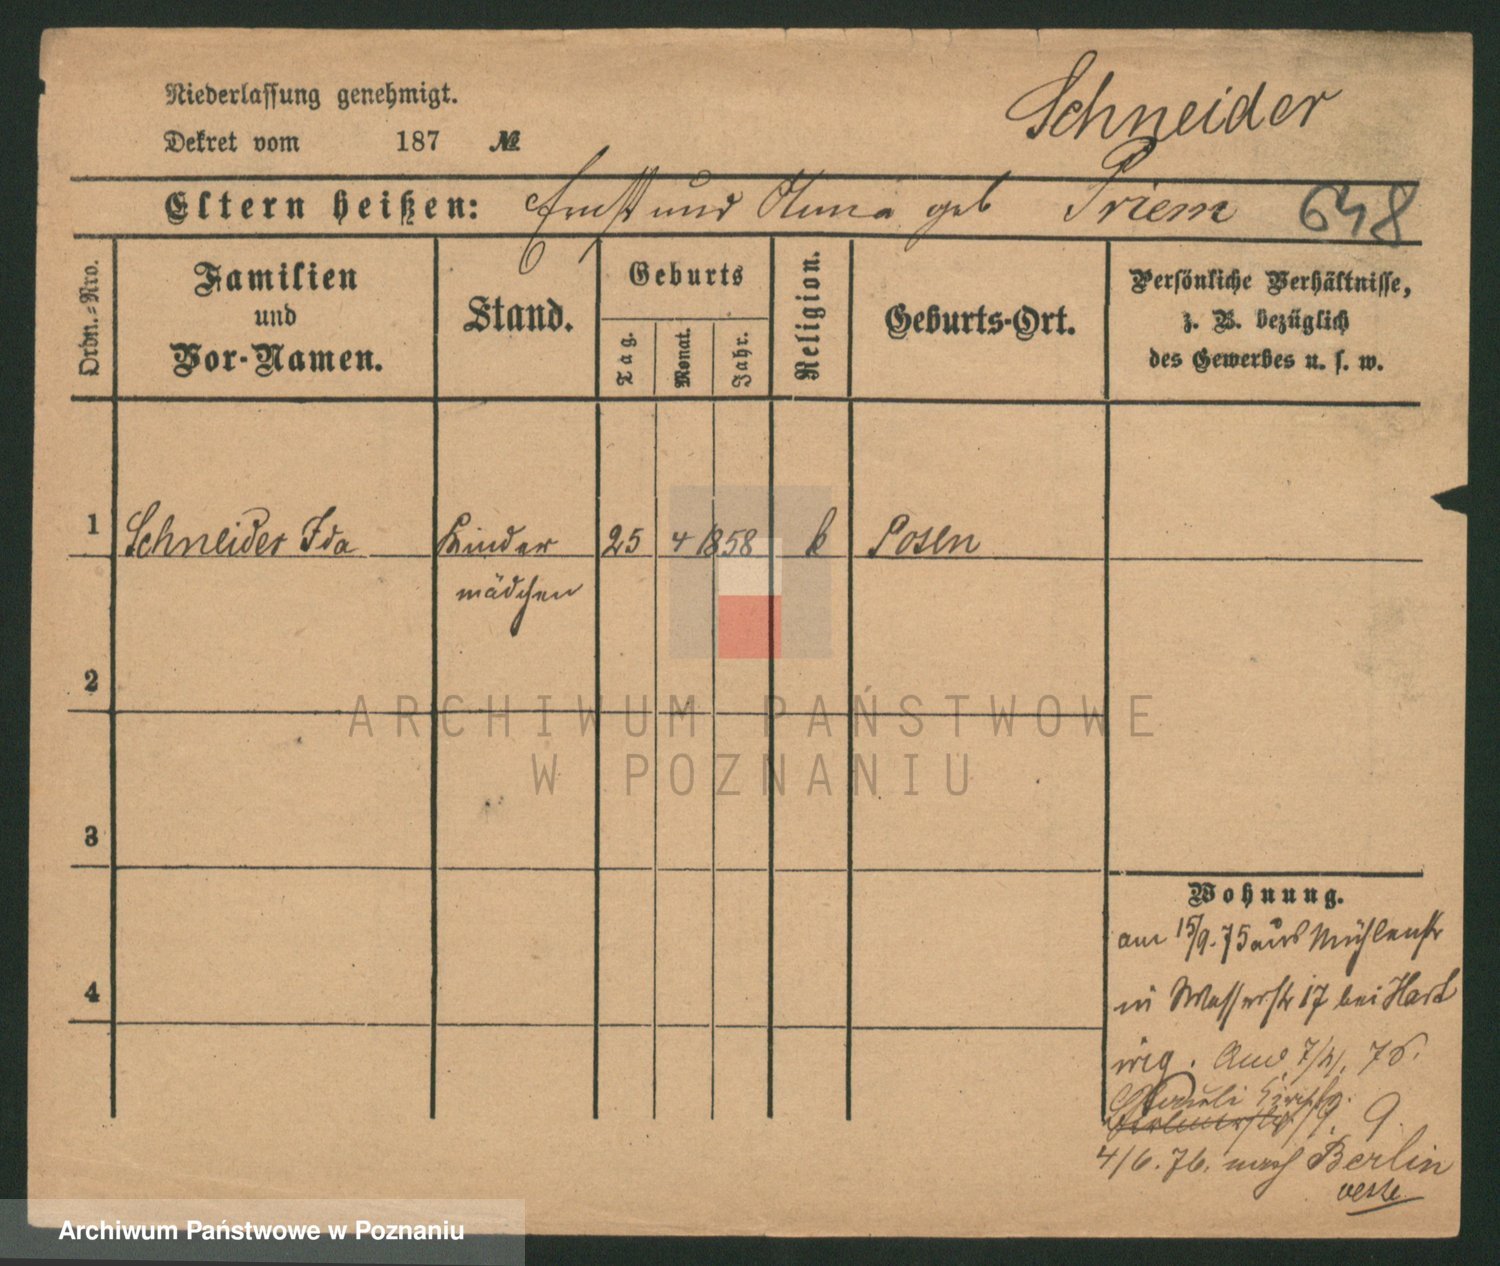 Niederlassung genehmigt.
Dekret vom 187 №
Schneider
Eltern heißen: Ernst und Anna geb Priem 648
Ordn.-Nro.
Familien
und
Vor-Namen.
Stand.
Geburts
Tag.
Monat.
Jahr.
Religion.
Geburts-Ort.
Persönliche Verhältnisse,
z. B. bezüglich
des Gewerbes u. s. w.
1 Schneider Ida Kinder 25 4 1858 k Posen
mädchen
2
3
4
Wohnung.
am 15/9. 75 aus Mühlenstr
in Wasserstr 17 bei Hart
wig.
9
4/6. 76. nach Berlin
ARCHIWUM PAŃSTWOWE
W POZNANIU
Archiwum Państwowe w Poznaniu